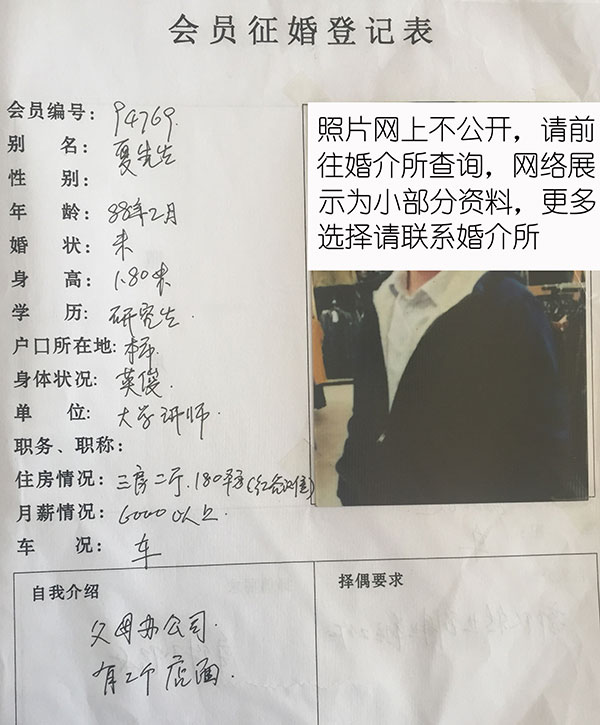 会员征婚登记表
会员编号：94769.
别 名：夏先生
性 别：
年 龄：88年2月
婚 状：未
身 高：1.80米
学 历：研究生.
户口所在地：本市.
身体状况：英俊.
单 位：大学讲师.
职务、职称：
住房情况：三房二厅.180平方(红谷滩)
月薪情况：6000以上.
车 况：车
照片网上不公开，请前
往婚介所查询，网络展
示为小部分资料，更多
选择请联系婚介所
自我介绍
父母办公司.
有2个店面.
择偶要求